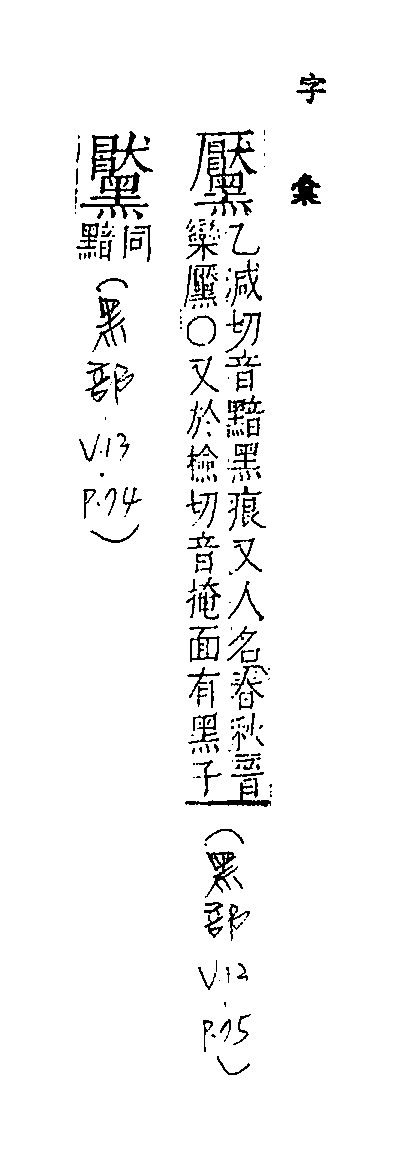 字彙
黶
乙減切音黯黑痕又人名春秋晉
欒黶○又於檢切音掩面有黑子
(黑部 V.12 P.75)
同
黯
(黑部 V.13 P.74)